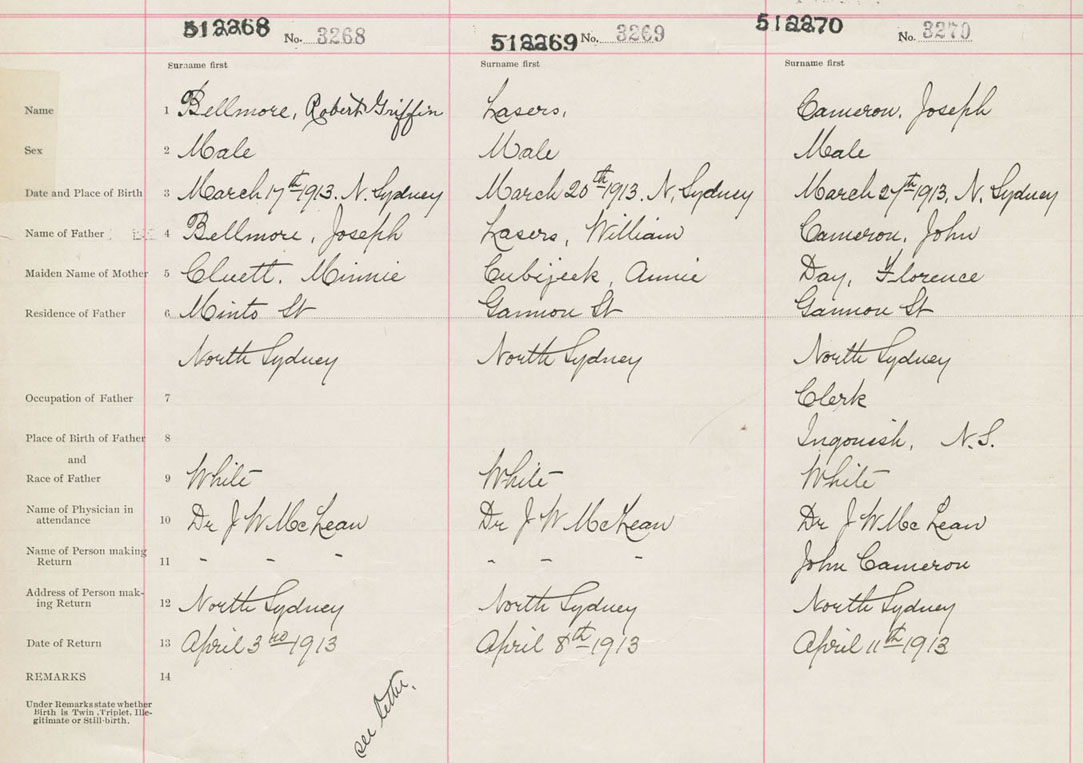 512268 No. 3268 512269 No. 3269 512270 No. 3270
Surname first Surname first Surname first
Name 1 Bellmore, Robert Griffin Lasers, Cameron, Joseph
Sex 2 Male Male Male
Date and Place of Birth 3 March 17th 1913. N. Sydney March 20th 1913. N. Sydney March 27th 1913. N. Sydney
Name of Father 4 Bellmore, Joseph Lasers, William Cameron, John
Maiden Name of Mother 5 Cluett, Minnie Cubijeek, Annie Day, Florence
Residence of Father 6 Minto St Gannon St Gannon St
North Sydney North Sydney North Sydney
Occupation of Father 7 Clerk
Place of Birth of Father 8 Ingonish, N.S.
and
Race of Father 9 White White White
Name of Physician in
attendance 10 Dr J W McLean Dr J W McLean Dr J W McLean
Name of Person making
Return 11 - - - - - - John Cameron
Address of Person mak-
ing Return 12 North Sydney North Sydney North Sydney
Date of Return 13 April 3rd 1913 April 8th 1913 April 11th 1913
REMARKS 14
Under Remarks state whether
Birth is Twin, Triplet, Ille-
gitimate or Still-birth.
see letter.